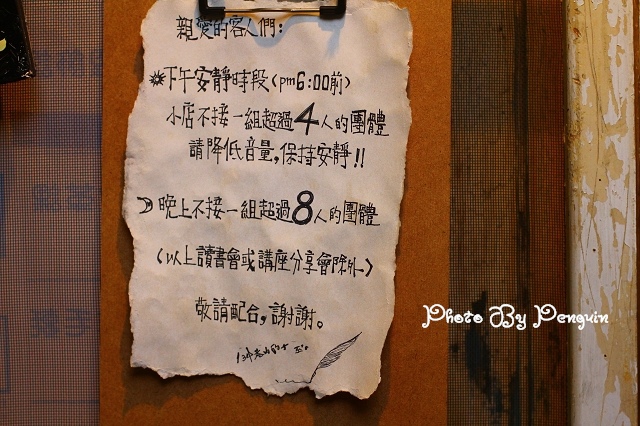 親愛的客人們:
☀下午安靜時段(pm6:00前)
小店不接一組超過4人的團體
請降低音量,保持安靜!!
☽晚上不接一組超過8人的團體
(以上讀書會或講座分享會除外)
敬請配合,謝謝。
Photo By Penguin